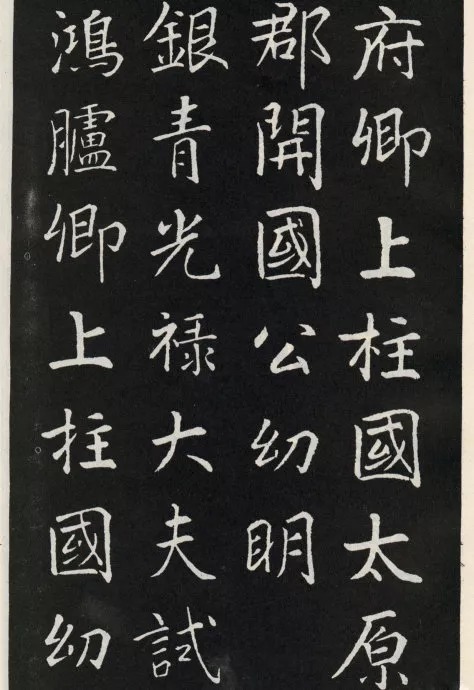 府卿上柱國太原
郡開國公幼明
銀青光禄大夫試
鴻臚卿上柱國幼